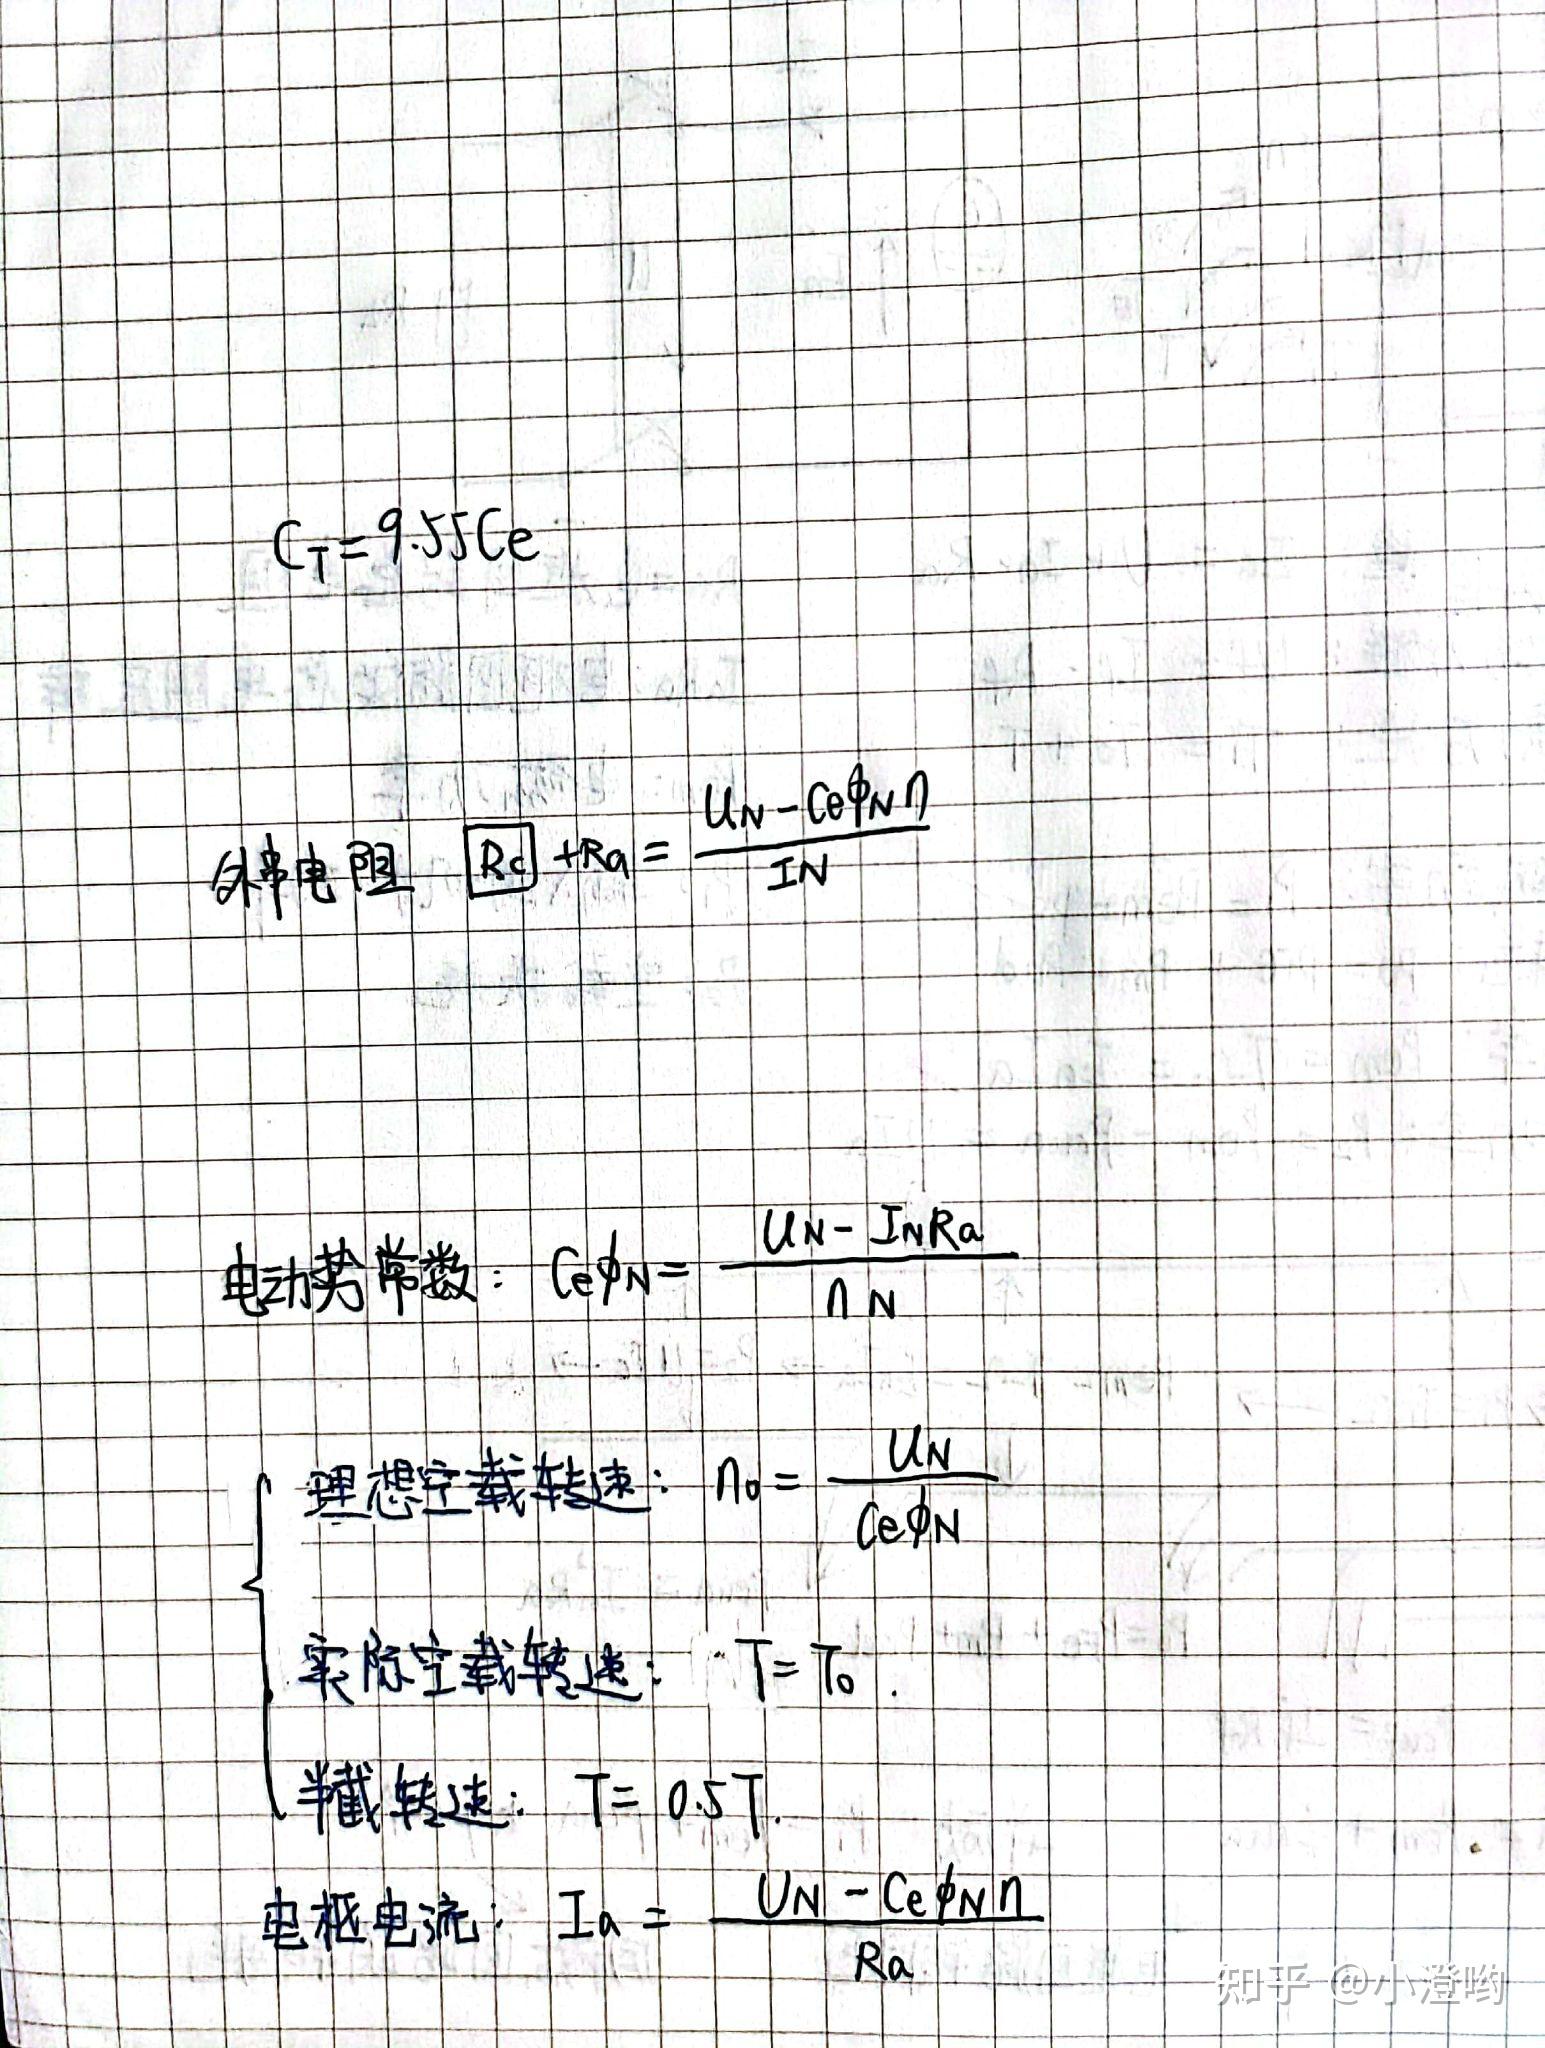 C_T = 9.55Ce
外串电阻 Rc + Ra = (U_N - CeΦ_N n) / I_N
电动势常数: CeΦ_N = (U_N - I_N Ra) / n_N
理想空载转速: n_0 = U_N / CeΦ_N
实际空载转速: T = T_0.
半截转速: T = 0.5T.
电枢电流: Ia = (U_N - CeΦ_N n) / Ra
知乎 @小澄哟